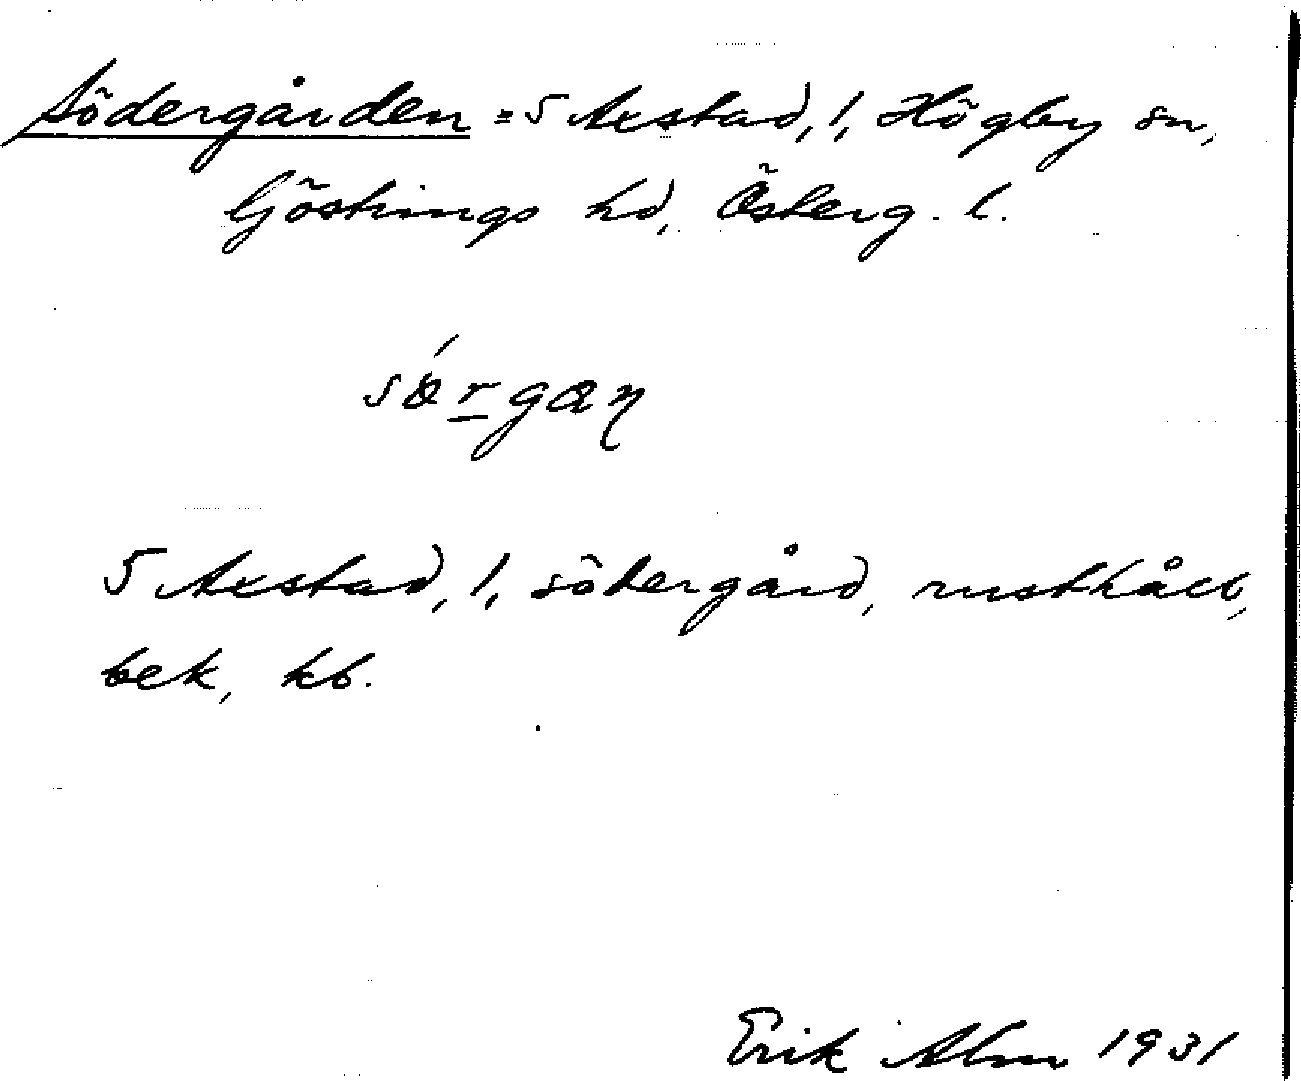 Södergården = 5 Axstad, 1, Högby sn,
Göstrings hd, Österg. l.
5 Axstad, 1, södergård, rusthåll,
bek, kb.
Erik Alm 1931